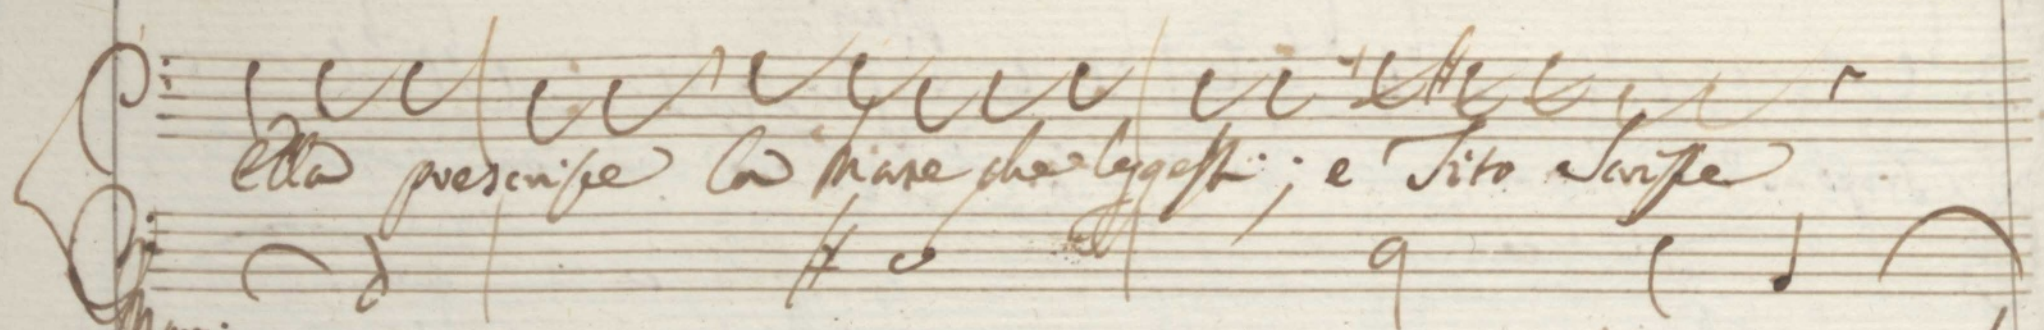 Ella prescrisse la che leggesti; e Tito Scrisse